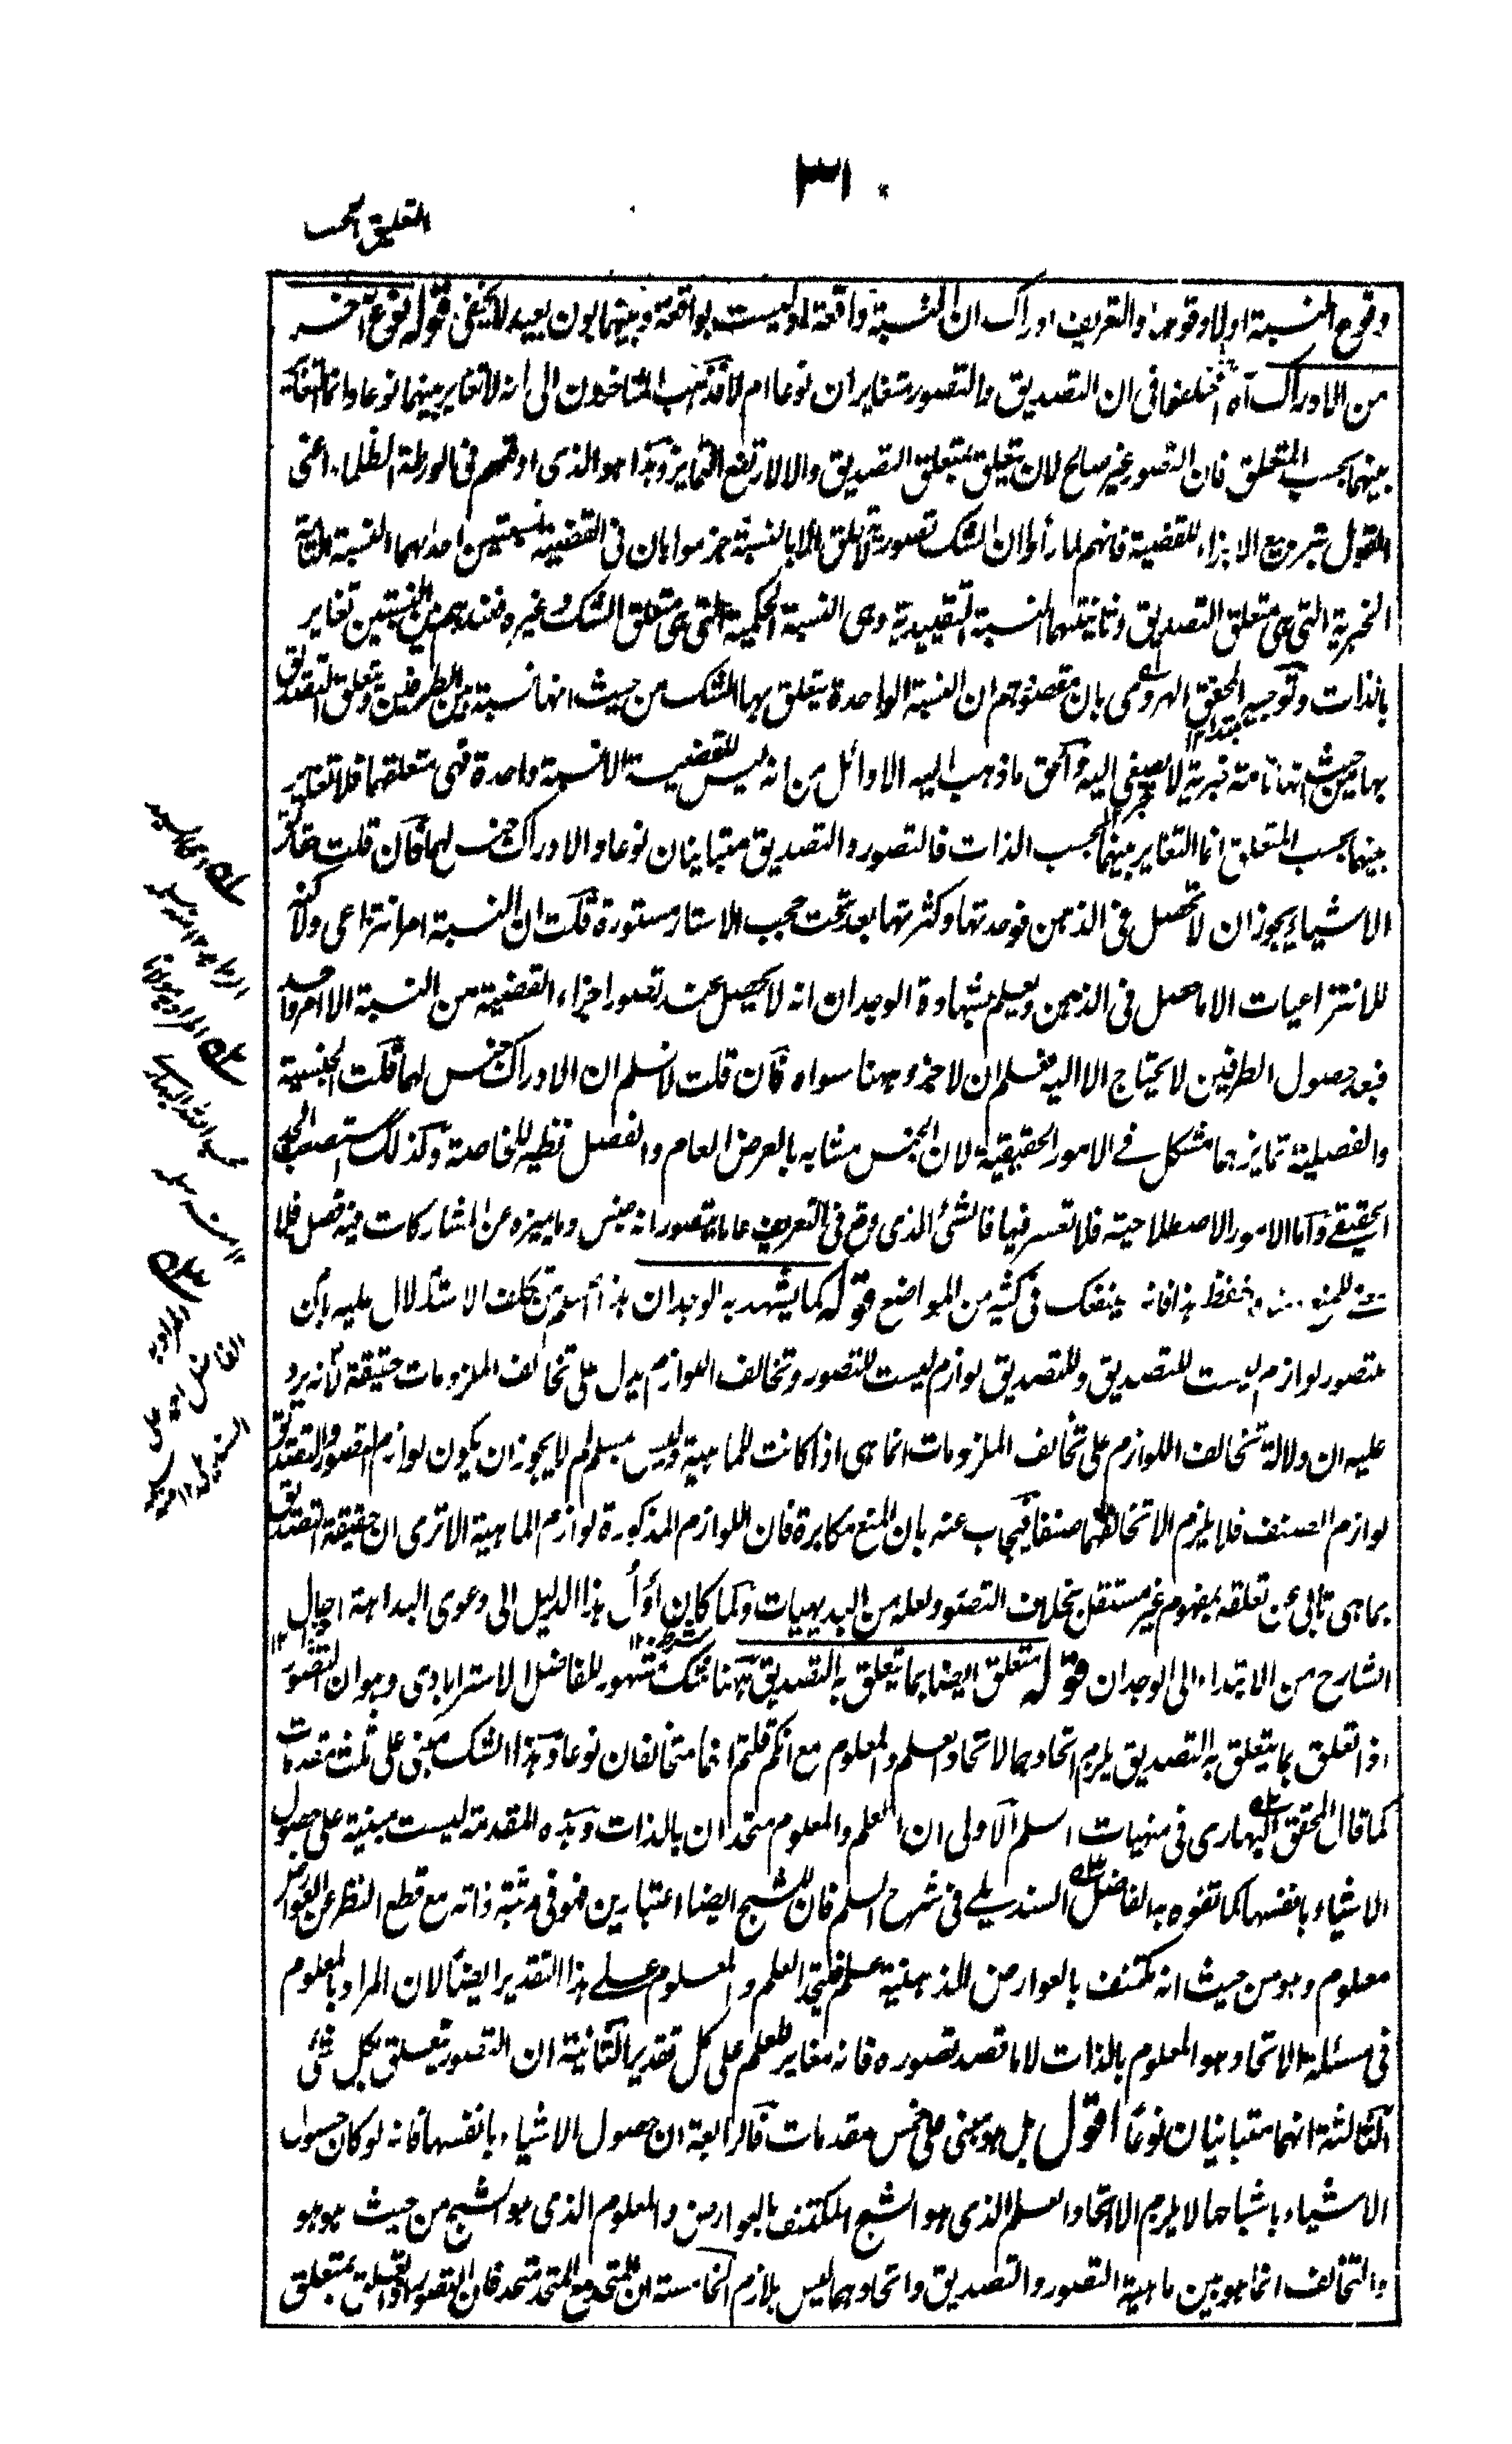 ٣١
التعليق العجيب
وقوع النسبة اولا وقوعها والتعريف ادراك ان النسبة واقعة او ليست بواقعة وبينهما بون بعيد لا يخفى قوله نوع آخر
من الادراك آه اختلفوا فى ان التصديق والتصور متغايران نوعا ام لا فذهب المتأخرون الى انه لا تغاير بينهما نوعا وانما التغاير
بينهما بحسب المتعلق فان التصور غير صالح لان يتعلق بمتعلق التصديق والا لارتفع التمايز وهذا هو الذى اوقعهم فى الورطة الظلماء اعنى
القول بتربيع الاجزاء للقضية فانهم لما رأوا ان الشك تصور لا يتعلق الا بالنسبة جزموا بان فى القضية نسبتين احداهما النسبة التامة
الخبرية التى هى متعلق التصديق وثانيتهما النسبة التقييدية وهى النسبة الحكمية التى هى متعلق الشك وغيره فعندهم بين النسبتين تغاير
بالذات وتوجيه المحقق الهروى بان مقصودهم ان النسبة الواحدة يتعلق بها الشك من حيث انها نسبة بين الطرفين ويتعلق التصديق
بها من حيث انها تامة خبرية لا يصغى اليه والحق ما ذهب اليه الاوائل من انه ليس للقضية الا نسبة واحدة فهى متعلقهما فلا تغاير
بينهما بحسب المتعلق انما التغاير بينهما بحسب الذات فالتصور والتصديق متباينان نوعا والادراك جنس لهما فان قلت حقائق
الاشياء يجوز ان لا تحصل فى الذهن فوحدتها وكثرتها بعد تحت حجب الاستار مستورة قلت ان النسبة امر انتزاعى ولا كنه
للانتزاعيات الا ما حصل فى الذهن ويعلم بشهادة الوجدان انه لا يحصل عند تصور اجزاء القضية من النسبة الا امر واحد
فبعد حصول الطرفين لا يحتاج الا اليه فعلم ان لا جزء ههنا سواه فان قلت لا نسلم ان الادراك جنس لهما قلت الجنسية
والفصلية تمايزهما مشكل فى الامور الحقيقية لان الجنس مشابه بالعرض العام والفصل نظير للخاصة وكذلك استصعب الحد
الحقيقى واما الامور الاصطلاحية فلا تعسر فيها فالشئ الذى وقع فى التعريف عاما يتصور انه جنس وما يميزه عن المشاركات فيه فصل فلا
معنى للمنع واحفظ هذا فانه ينفعك فى كثير من المواضع قوله كما يشهد به الوجدان هذا اسلم من تكلف الاستدلال عليه بان
للتصور لوازم ليست للتصديق وللتصديق لوازم ليست للتصور وتخالف اللوازم يدل على تخالف الملزومات حقيقة لانه يرد
عليه ان دلالة تخالف اللوازم على تخالف الملزومات انما هى اذا كانت للماهية وليس بمسلم لم لا يجوز ان يكون لوازم التصور والتصديق
لوازم الصنف فلا يلزم الا تخالفهما صنفا فيجاب عنه بان المنع مكابرة فان اللوازم المذكورة لوازم الماهية الا ترى ان حقيقة التصديق
بما هى تابى عن تعلقه بمفهوم غير مستقل بخلاف التصور ولعله من البديهيات ولما كان اول هذا الدليل الى دعوى البداهة احال
الشارح من الابتداء الى الوجدان قوله متعلق ايضا بما يتعلق به التصديق ههنا شك مشهور للفاضل الاسترابادى وهو ان التصور
اذا تعلق بما يتعلق به التصديق يلزم اتحادهما لاتحاد العلم والمعلوم مع انكم قلتم انهما متخالفان نوعا وهذا الشك مبنى على ثلث مقدمات
كما قال المحقق البهارى فى منهيات السلم الاولى ان العلم والمعلوم متحدان بالذات وهذه المقدمة ليست مبنية على حصول
الاشياء بانفسها كما تفوه به الفاضل السنديلى فى شرح السلم فان للشبح ايضا اعتبارين فهو فى مرتبة ذاته مع قطع النظر عن العوارض
معلوم وهو من حيث انه مكتنف بالعوارض الذهنية علم فيتحد العلم والمعلوم على هذا التقدير ايضا لان المراد بالمعلوم
فى مسئلة الاتحاد هو المعلوم بالذات لا ما قصد تصوره فانه مغاير للعلم على كل تقدير الثانية ان التصور يتعلق بكل شئ
الثالثة انهما متباينان نوعا اقول بل هو مبنى على خمس مقدمات فالرابعة ان حصول الاشياء بانفسها فانه لو كان حصول
الاشياء باشباحها لا يلزم الا اتحاد العلم الذى هو الشبح المكتنف بالعوارض والمعلوم الذى هو الشبح من حيث هو هو
والتخالف انما هو بين ماهية التصور والتصديق واتحادهما ليس بلازم الخامسة ان المتحد مع المتحد متحد فان التصور اذا تعلق بمتعلق